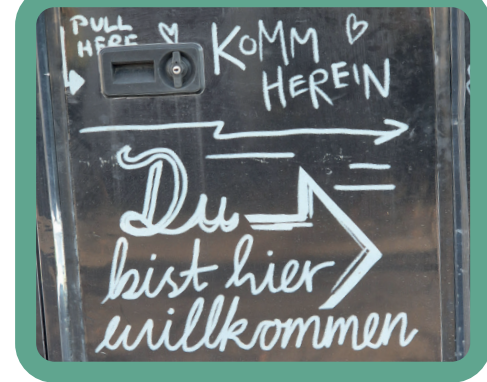 PULL
HERE
KOMM
HEREIN
Du
bist hier
willkommen